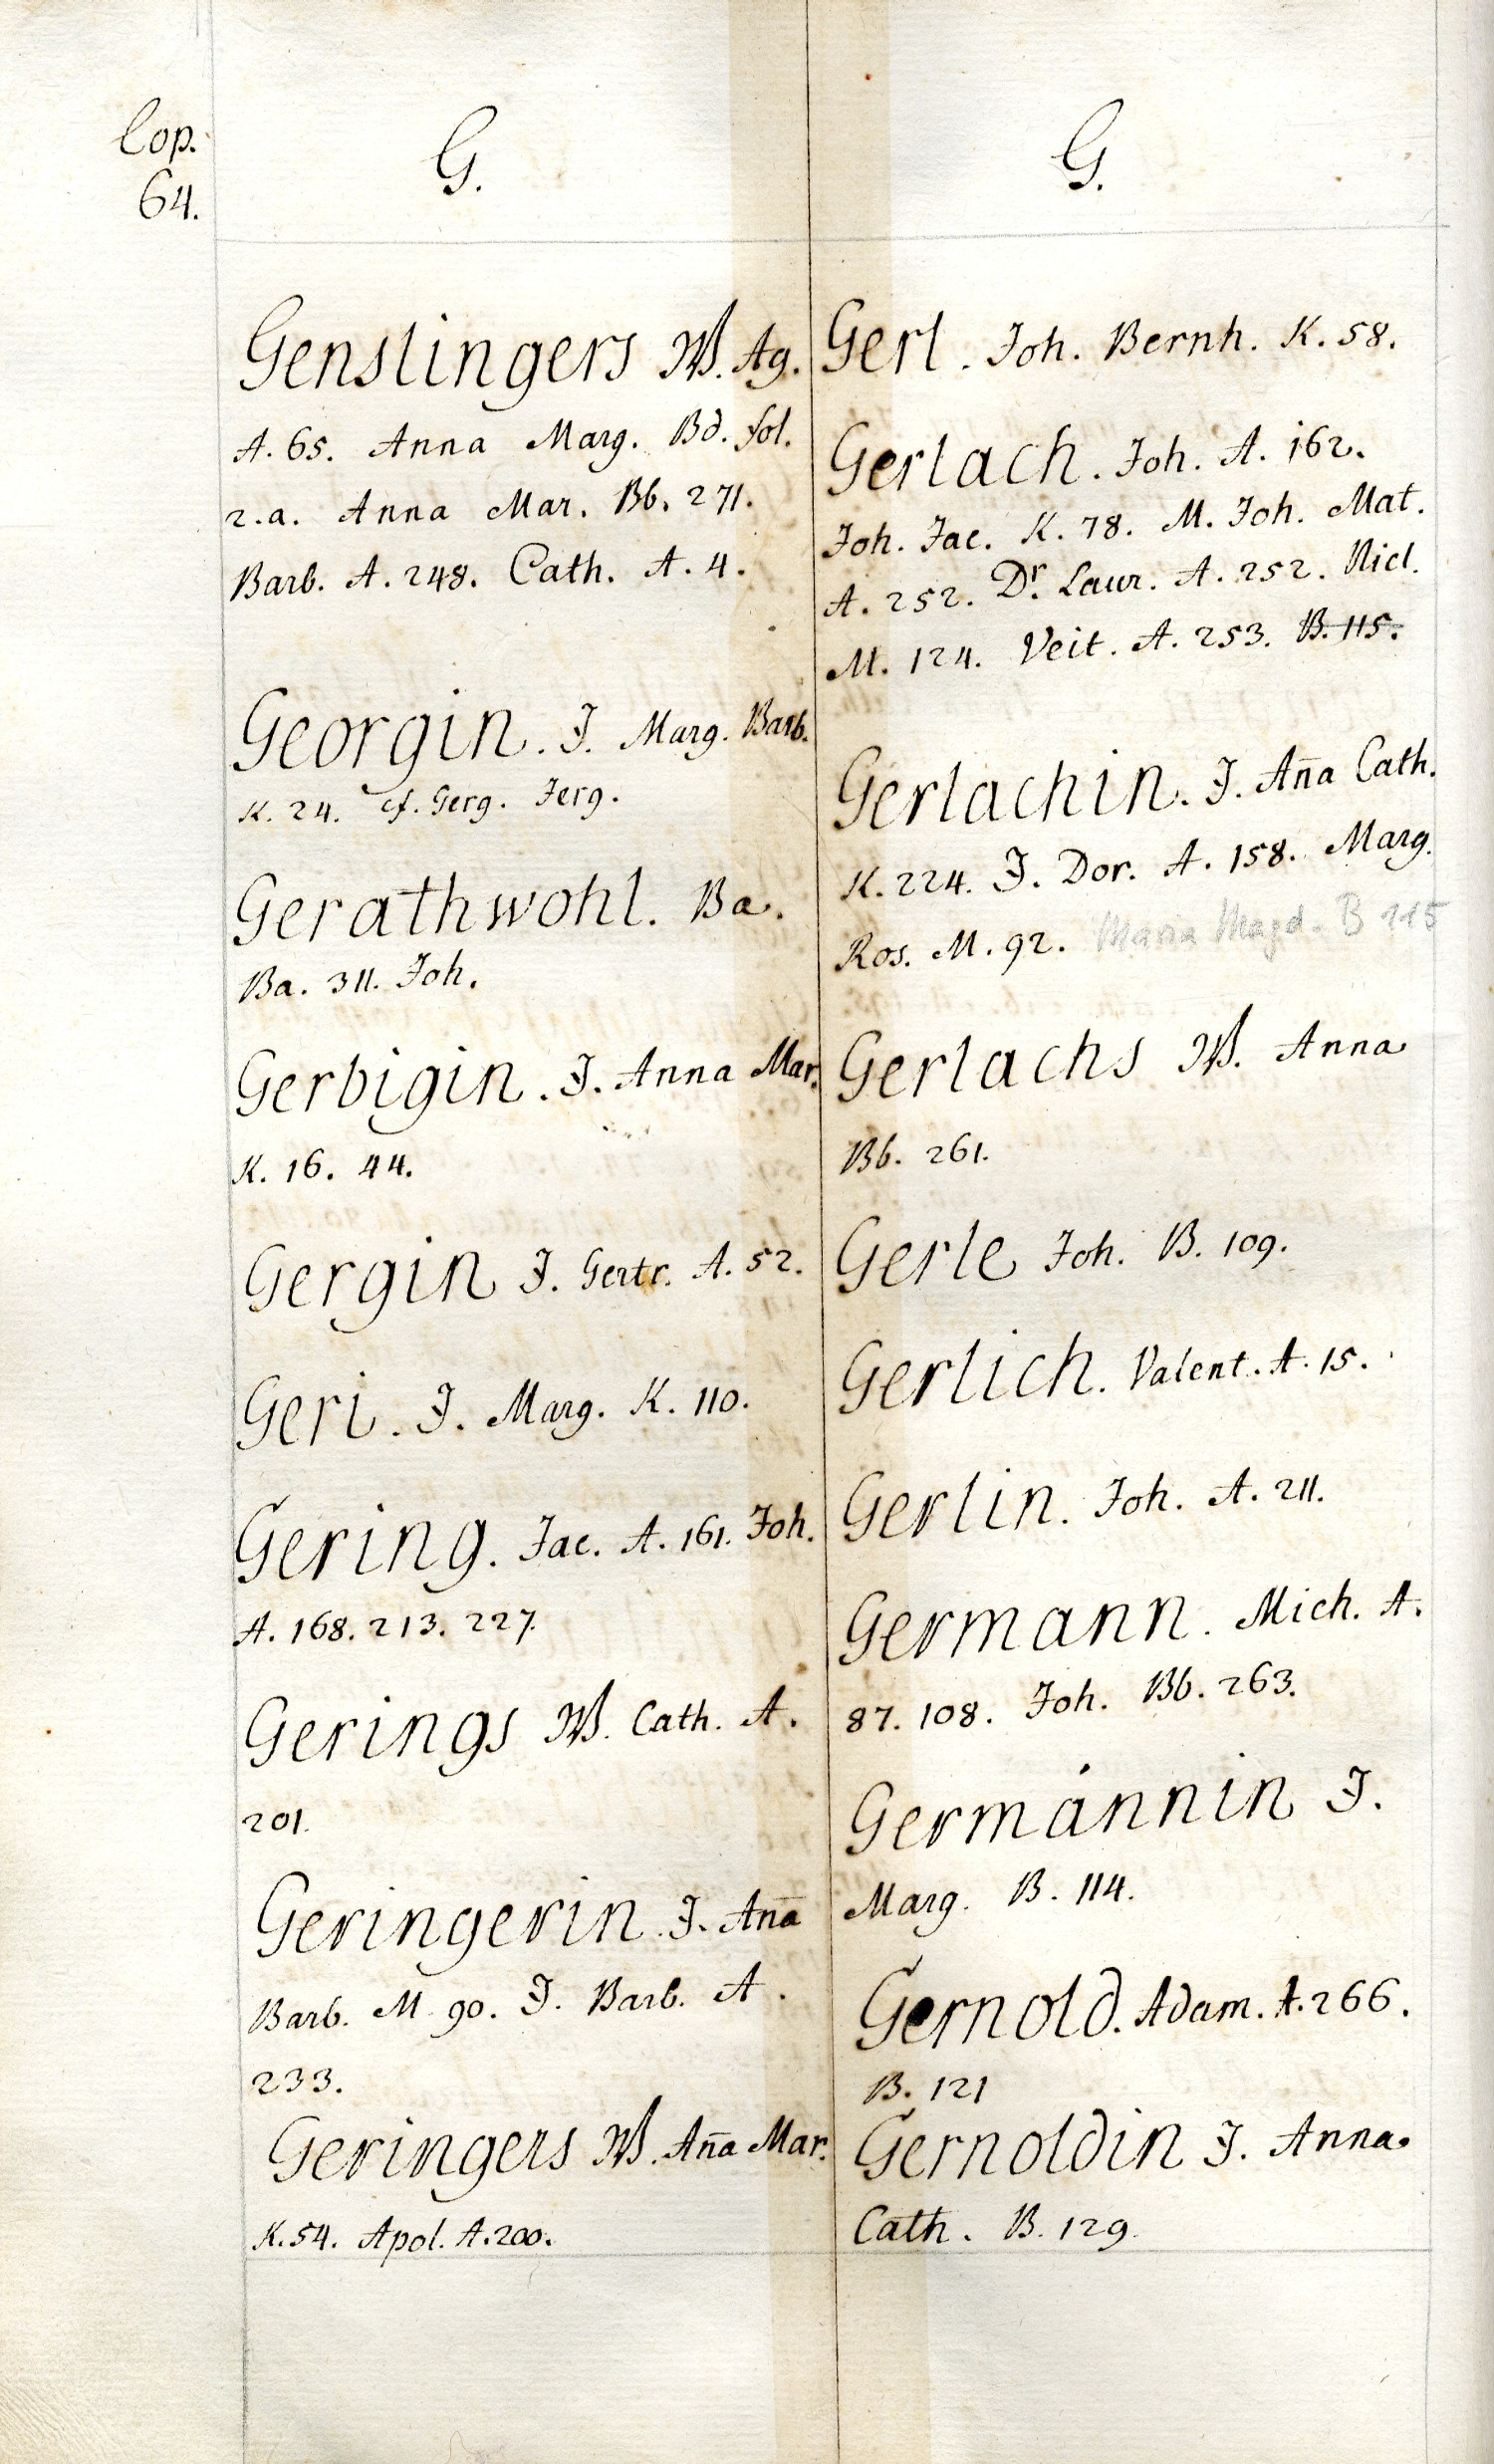 Cop.
64.
G.
Genslingers W. Ag.
A. 65. Anna Marg. Bd. fol.
2.a. Anna Mar. Bb. 271.
Barb. A. 248. Cath. A. 4.
Georgin. J. Marg. Barb.
K. 24. cf. Gerg. Jerg.
Gerathwohl. Ba.
Ba. 311. Joh.
Gerbigin. J. Anna Mar.
K. 16. 44.
Gergin J. Gertr. A. 52.
Geri. J. Marg. K. 110.
Gering. Jac. A. 161. Joh.
A. 168. 213. 227.
Gerings W. Cath. A.
201.
Geringerin. J. Ana̅
Barb. M. 90. J. Barb. A.
233.
Geringers W. An̅a Mar.
K. 54. Apol. A. 200.
G.
Gerl. Joh. Bernh. K. 58.
Gerlach. Joh. A. 162.
Joh. Jac. K. 78. M. Joh. Mat.
A. 252. Dr. Laur. A. 252. Nicl.
M. 124. Veit. A. 253. B. 115.
Gerlachin. J. An̅a Cath.
K. 224. J. Dor. A. 158. Marg.
Ros. M. 92. Maria Magd. B 115
Gerlachs W. Anna
Bb. 261.
Gerle Joh. B. 109.
Gerlich. Valent. A. 15.
Gerlin. Joh. A. 211.
Germann. Mich. A.
87. 108. Joh. Bb. 263.
Germännin J.
Marg. B. 114.
Gernold. Adam. A. 266.
B. 121
Gernoldin J. Anna
Cath. B. 129.